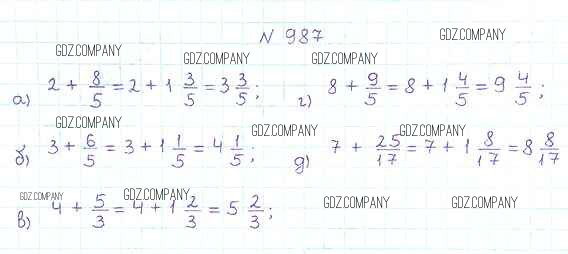 N 987
GDZ.COMPANY
GDZ.COMPANY GDZ.COMPANY
а) 2 + 8/5 = 2 + 1 3/5 = 3 3/5; г) 8 + 9/5 = 8 + 1 4/5 = 9 4/5;
GDZ.COMPANY GDZ.COMPANY GDZ.COMPANY
б) 3 + 6/5 = 3 + 1 1/5 = 4 1/5; д) 7 + 25/17 = 7 + 1 8/17 = 8 8/17
GDZ.COMPANY GDZ.COMPANY GDZ.COMPANY GDZ.COMPANY
в) 4 + 5/3 = 4 + 1 2/3 = 5 2/3;